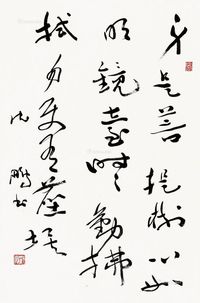 身是菩提樹心如
明鏡臺時々勤拂
拭勿使有塵埃
沈鵬書